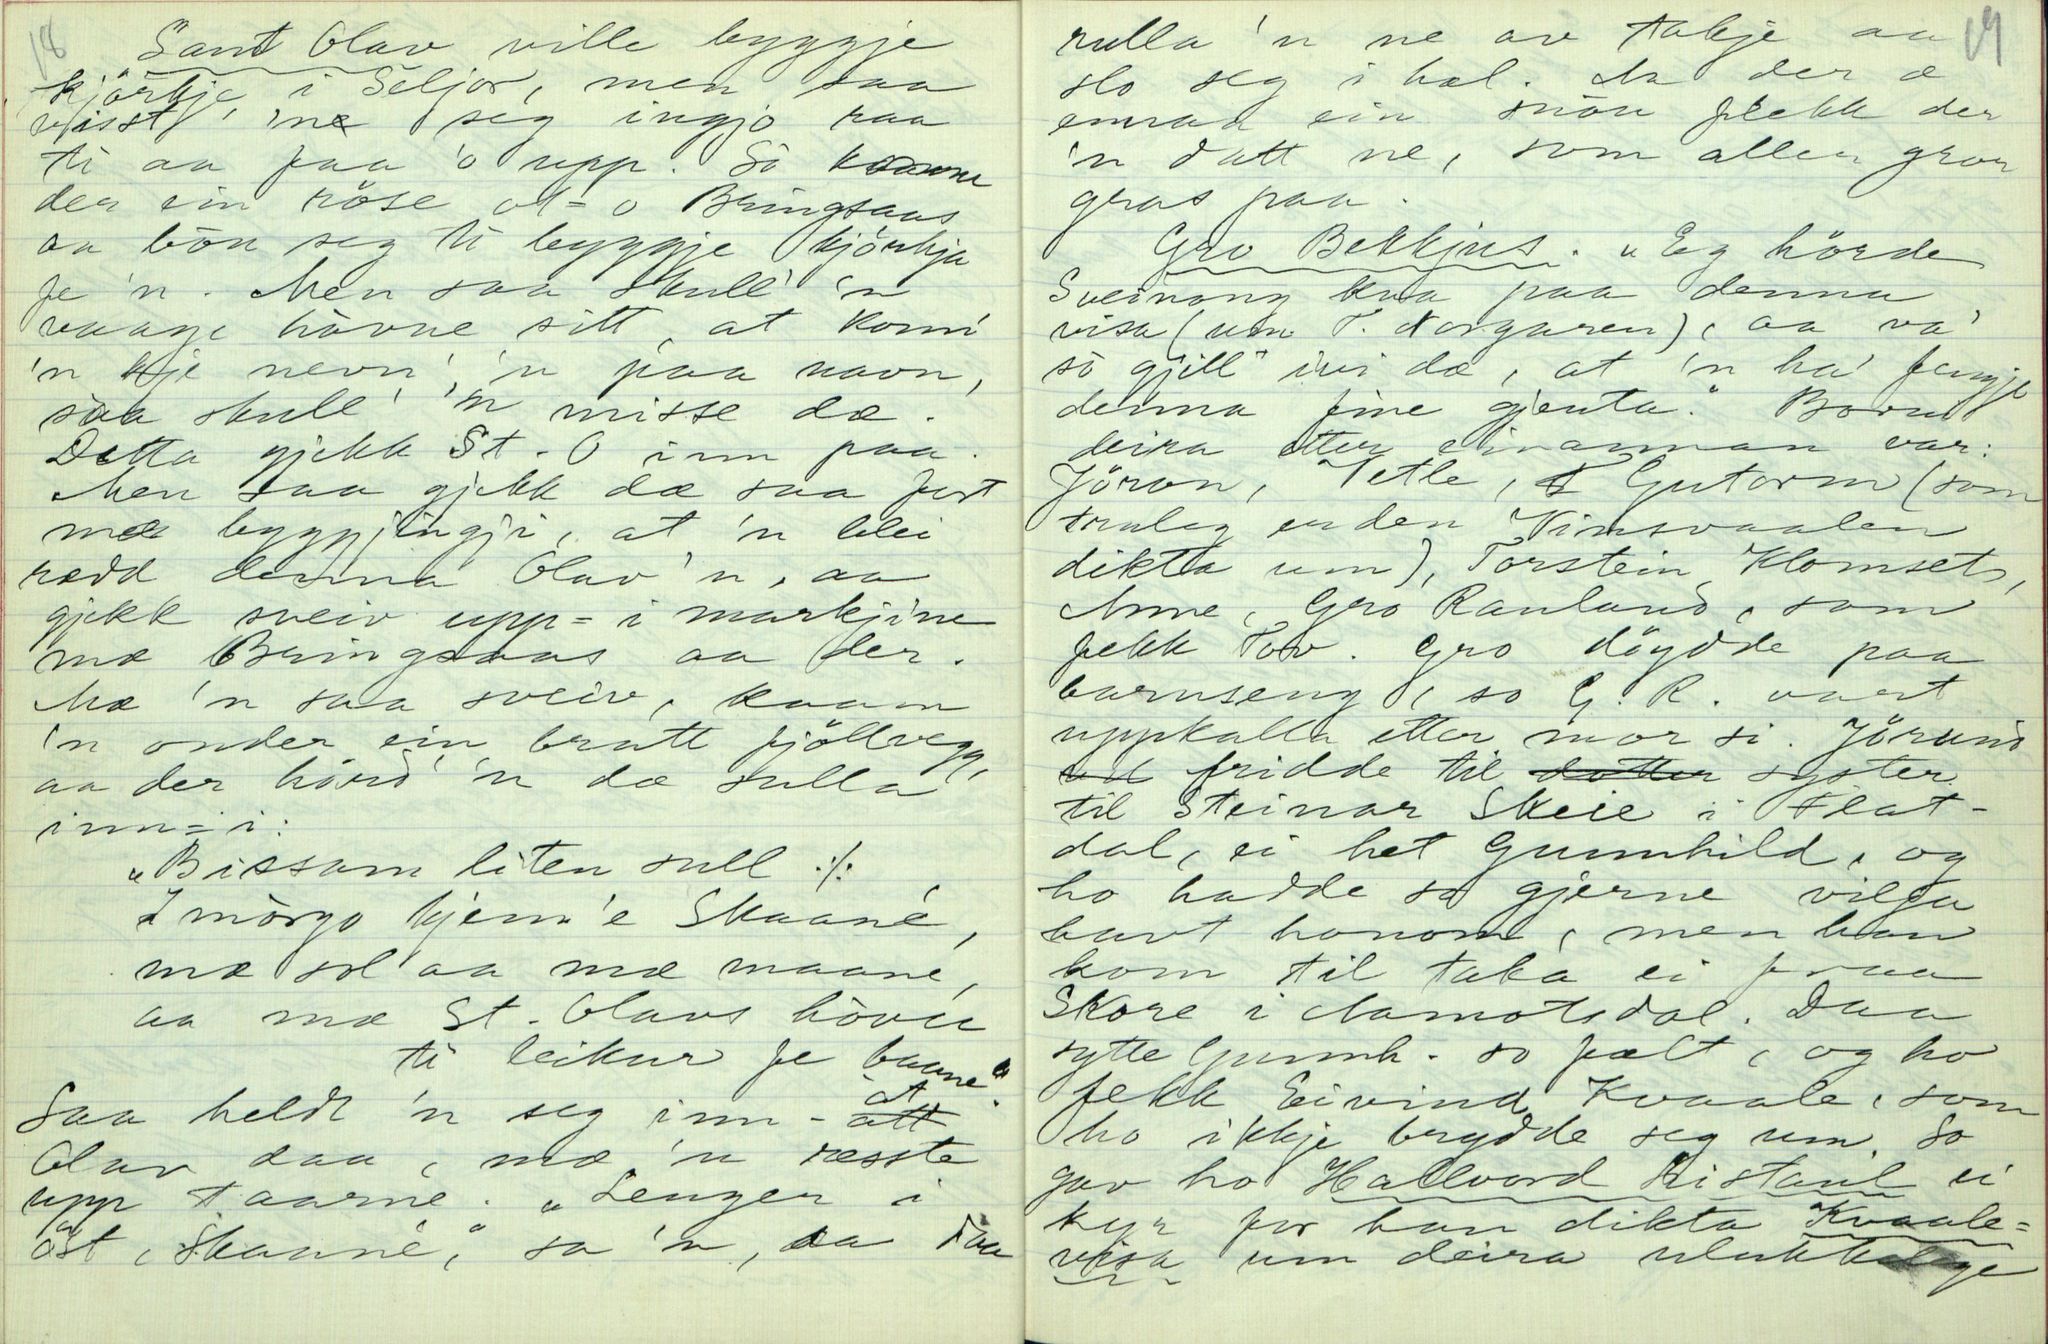 18
Sant Olav ville byggje
kjörkje i Seljor, men saa
visst 'ne seg ingjo raa
ti aa faa 'o upp. Så kaam
der ein röse ot-o Bringsaas
aa böu seg ti byggje kjörkja
fe 'n. Men saa skull' 'n
vaage hövue sitt, at kom'
'n kje nevn' 'n paa navn,
saa skull' 'n misse dæ.
Detta gjekk St. O inn paa.
Men saa gjekk dæ saa fort
mæ byggjingji, at 'n blei
rædd denna Olav'n, aa
gjekk sveiv upp-i markjine
mæ Bringsaas aa der.
Mæ 'n saa sveiv, kaam
'n onder ein bratt fjöllvegg,
aa der hörd' 'n dæ sulla
inn-i:
"Bissam liten sull ·/·
I mörgo kjem'e Skaané,
mæ sol aa mæ maané,
aa mæ St. Olavs hövu
ti leikur fe baane."
Saa heldt 'n seg inn-att at
Olav daa, mæ 'n ræsste
upp taarne. "Lenger i
öst, Skaané," sa 'n, aa daa
19
rulla 'n ne av takje aa
slo seg i hæl. Aa der æ
enraa ein snöu flekk der
'n datt ne, som aller gror
gras paa.
Gro Bekkjus. "Eg hörde
Sveinong kva paa denna
visa (um T. Norgaren), aa va'
så gjill ivi dæ, at 'n ha' fengje
denna fine gjenta." Borni
deira etter einannan var:
Jöron, Vetle, Gutorm (som
truleg er den Vinsvaalen
dikta um), Torstein Klomset,
Anne, Gro Rauland, som
fekk Tov. Gro döydde paa
barnseng, so G. R. vart
uppkalla etter mor si. Jörund
fridde til dotter syster
til Steinar Skeie i Flat-
dal, ei het Gunnhild, og
ho hadde so gjerne vilja
havt honom, men han
kom til taka ei fraa
Skore i Aamotsdal. Daa
sytte Gunnh. so fælt, og ho
fekk Eivind Kvaale, som
ho ikkje brydde seg um. So
gav ho Hallvord Ristaul ei
kyr for han dikta Kvaale-
visa um deira ulukkelege